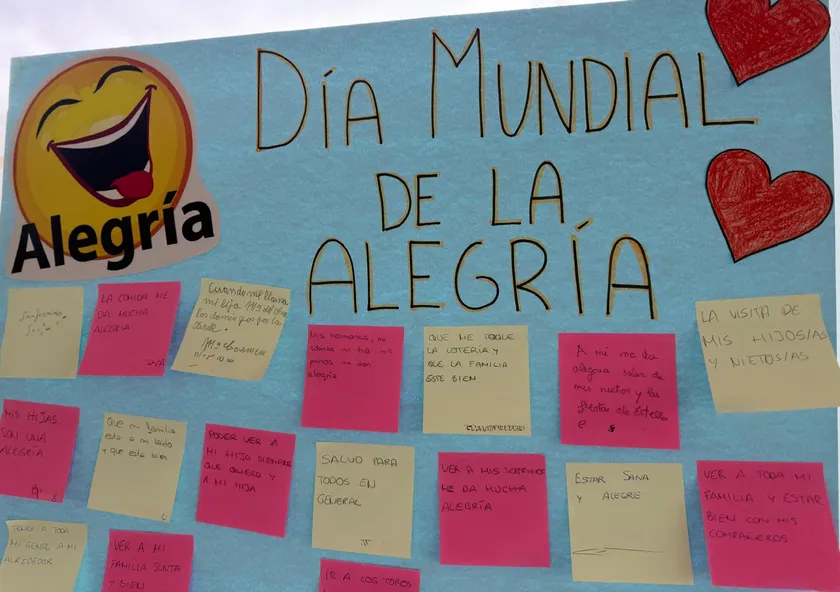 DÍA MUNDIAL
DE LA
ALEGRÍA
Alegría
LA COMIDA ME
DA MUCHA
ALEGRIA
Cuando me llama
mi hija
los domingos por la
tarde.
Mis hermanos, mi
QUE ME TOQUE
LA LOTERÍA Y
QUE LA FAMILIA
ESTE BIEN
A mi me da
alegria saber de
mis nietos y las
fiestas de Estella
LA VISITA DE
MIS HIJOS/AS
Y NIETOS/AS
MIS HIJAS
SON UNA
ALEGRÍA
Que mi familia
este a mi lado
y que este bien
PODER VER A
MI HIJO SIEMPRE
QUE QUIERO Y
A MI HIJA
SALUD PARA
TODOS EN
GENERAL
VER A MIS SOBRINOS
ME DA MUCHA
ALEGRÍA
ESTAR SANA
Y ALEGRE
VER A TODA MI
FAMILIA Y ESTAR
BIEN CON MIS
COMPAÑEROS
TENER A TODA
MI GENTE A MI
ALREDEDOR
VER A MI
FAMILIA JUNTA
Y BIEN
IR A LOS TOROS